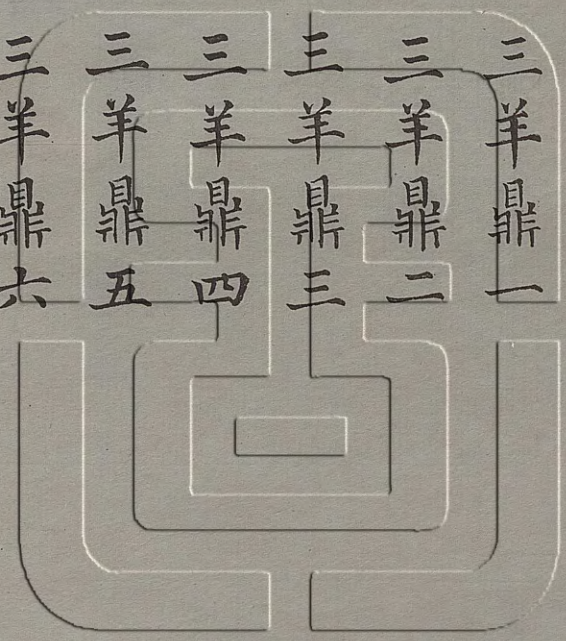 三羊鼎一
三羊鼎二
三羊鼎三
三羊鼎四
三羊鼎五
三羊鼎六